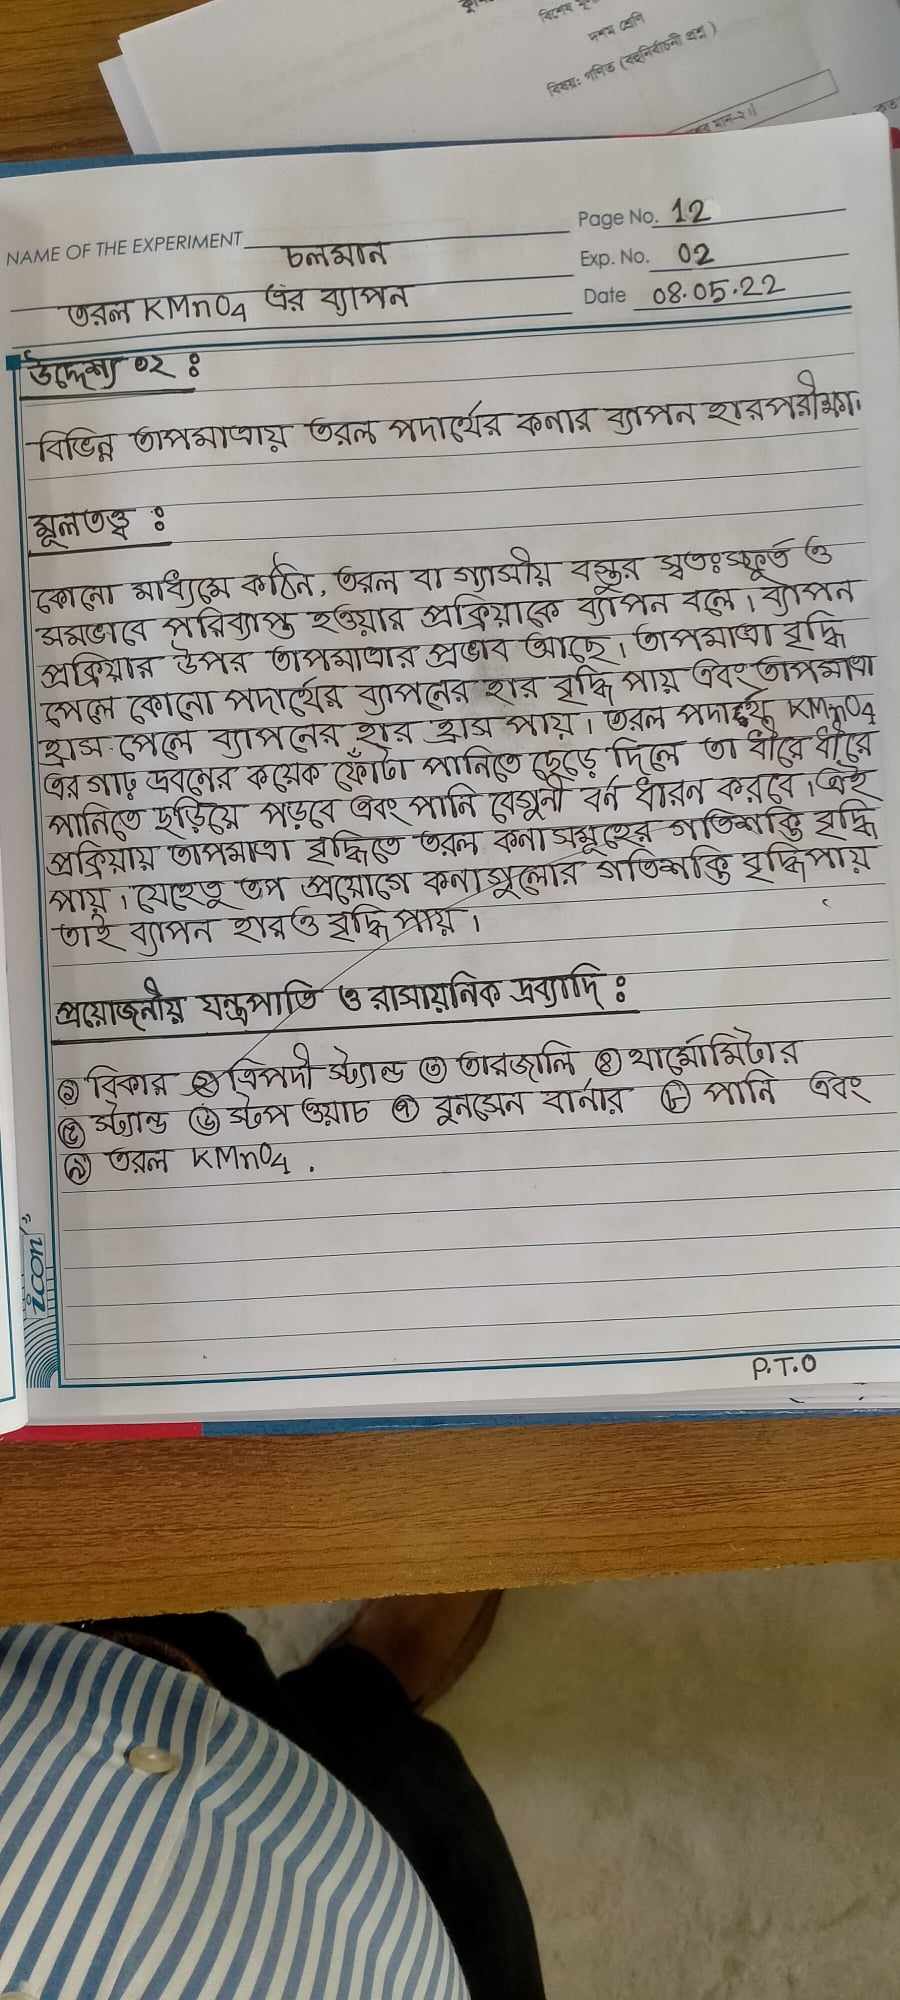 দশম শ্রেণি
বিষয়: গণিত (বহুনির্বাচনী প্রশ্ন)
NAME OF THE EXPERIMENT চলমান
তরল KMnO4 এর ব্যাপন
Page No. 12
Exp. No. 02
Date 08.05.22
উদ্দেশ্য ০২ :
বিভিন্ন তাপমাত্রায় তরল পদার্থের কনার ব্যাপন হার পরীক্ষা।
মূলতত্ত্ব :
কোনো মাধ্যমে কঠিন, তরল বা গ্যাসীয় বস্তুর স্বতঃস্ফূর্ত ও
সমভাবে পরিব্যাপ্ত হওয়ার প্রক্রিয়াকে ব্যাপন বলে। ব্যাপন
প্রক্রিয়ার উপর তাপমাত্রার প্রভাব আছে। তাপমাত্রা বৃদ্ধি
পেলে কোনো পদার্থের ব্যাপনের হার বৃদ্ধি পায় এবং তাপমাত্রা
হ্রাস পেলে ব্যাপনের হার হ্রাস পায়। তরল পদার্থে KMnO4
এর গাঢ় দ্রবনের কয়েক ফোঁটা পানিতে ছেড়ে দিলে তা ধীরে ধীরে
পানিতে ছড়িয়ে পড়বে এবং পানি বেগুনী বর্ন ধারন করবে। এই
প্রক্রিয়ায় তাপমাত্রা বৃদ্ধিতে তরল কনাসমূহের গতিশক্তি বৃদ্ধি
পায়। যেহেতু তপ প্রয়োগে কনাগুলোর গতিশক্তি বৃদ্ধি পায়
তাই ব্যাপন হারও বৃদ্ধি পায়।
প্রয়োজনীয় যন্ত্রপাতি ও রাসায়নিক দ্রব্যাদি :
① বিকার ② ত্রিপদী স্ট্যান্ড ③ তারজালি ④ থার্মোমিটার
⑤ স্ট্যান্ড ⑥ স্টপ ওয়াচ ⑦ বুনসেন বার্নার ⑧ পানি এবং
⑨ তরল KMnO4 .
icon
P.T.O